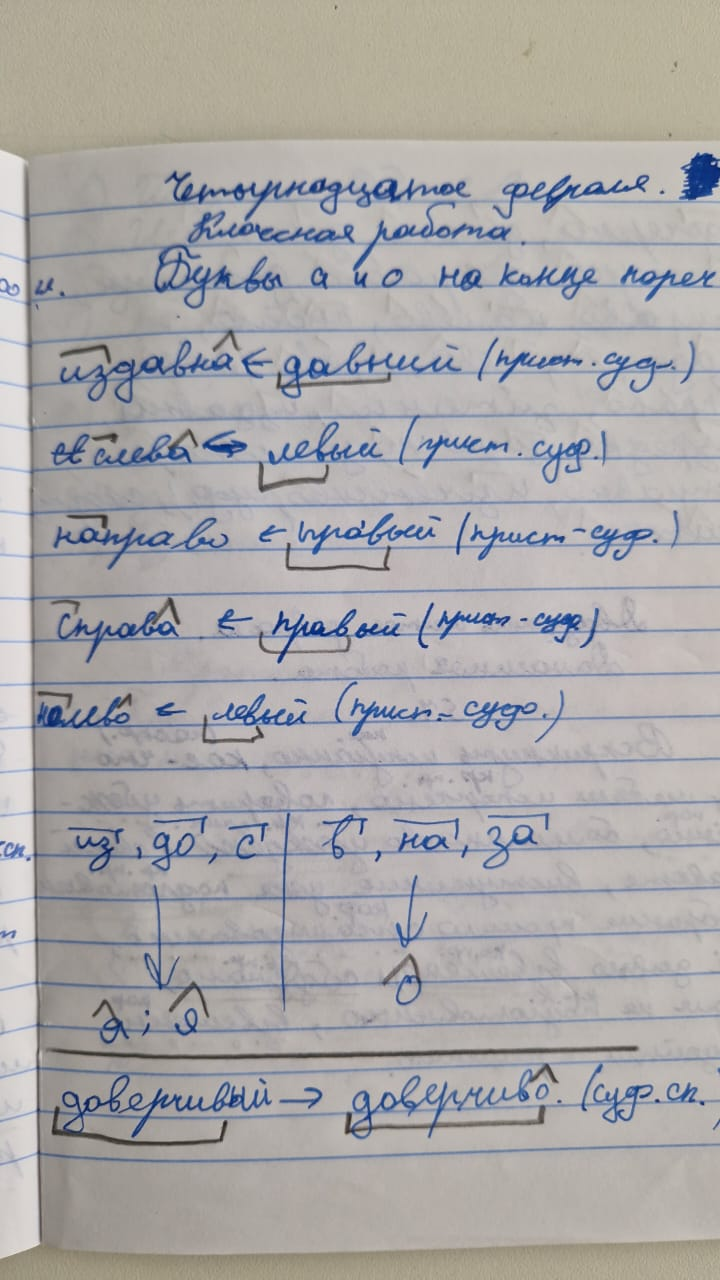 Четырнадцатое февраля.
Классная работа.
Буквы а и о на конце нареч
издавна ← давний (прист. суф.)
слева ← левый (прист. суф.)
направо ← правый (прист-суф.)
справа ← правый (прист-суф)
налево ← левый (прист-суф.)
из, до, с | в, на, за
а; я
о
доверчивый → доверчиво. (суф. сп.)